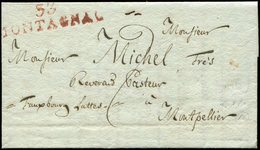 53
MONTAGNAC
Monsieur
Monsieur Michel Très
Reverend Pasteur
Fauxbourg Lattes à
Montpellier